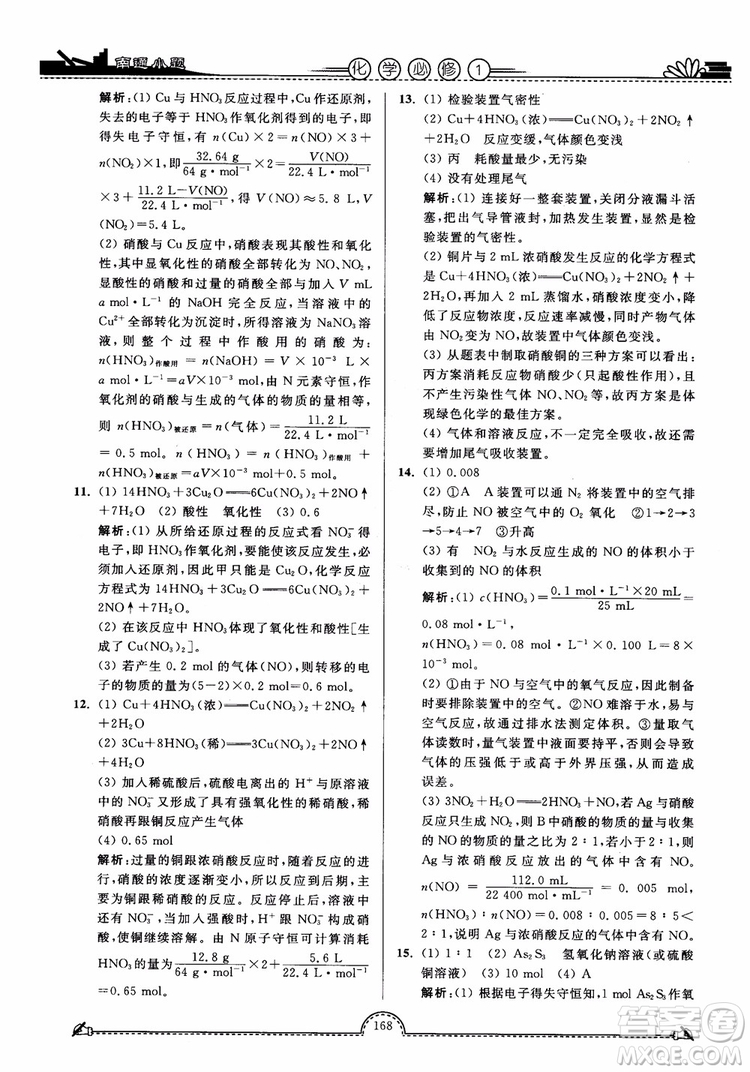 南通小题
化学必修1
解析:(1) Cu与HNO₃反应过程中,Cu作还原剂,
失去的电子等于HNO₃作氧化剂得到的电子,即
得失电子守恒,有2×n(Cu)=n(NO)×3+
n(NO₂)×1,即32.64 g/64 g·mol⁻¹×2=V(NO)/22.4 L·mol⁻¹
×3+11.2 L-V(NO)/22.4 L·mol⁻¹,得V(NO)≈5.8 L,V
(NO₂)=5.4 L。
(2) 硝酸与Cu反应中,硝酸表现其酸性和氧化
性,其中显氧化性的硝酸全部转化为NO、NO₂,
显酸性的硝酸和过量的硝酸全部与加入V mL
a mol·L⁻¹的NaOH完全反应,当溶液中的
Cu²⁺全部转化为沉淀时,所得溶液为NaNO₃溶
液,则整个过程中作酸用的硝酸为:
n(HNO₃)作酸用=n(NaOH)=V×10⁻³ L×
a mol·L⁻¹=aV×10⁻³;由N元素守恒,作
氧化剂的硝酸与生成的气体的物质的量相等,
则n(HNO₃)被还原=n(气体)=11.2 L/22.4 L·mol⁻¹
=0.5 mol。n(HNO₃)=n(HNO₃)作酸用+
n(HNO₃)被还原=aV×10⁻³+0.5 mol。
11. (1) 14HNO₃+3Cu₂O══6Cu(NO₃)₂+2NO↑
+7H₂O (2) 酸性 氧化性 (3) 0.6
解析:(1) 从所给还原过程的反应式看NO₃⁻得
电子,即HNO₃作氧化剂,要能使该反应发生,必
须加入还原剂,因此甲只能是Cu₂O,反应化学
方程式为14HNO₃+3Cu₂O══6Cu(NO₃)₂+
2NO↑+7H₂O。
(2) 在该反应中HNO₃体现了氧化性和酸性[生
成了Cu(NO₃)₂]。
(3) 若产生0.2 mol的气体(NO),则转移的电
子的物质的量为(5-2)×0.2 mol=0.6 mol。
12. (1) Cu+4HNO₃(浓)══Cu(NO₃)₂+2NO₂↑
+2H₂O
(2) 3Cu+8HNO₃(稀)══3Cu(NO₃)₂+2NO↑
+4H₂O
(3) 加入稀硫酸后,硫酸电离出的H⁺与原溶液
中的NO₃⁻又形成了具有强氧化性的稀硝酸,稀
硝酸再跟铜反应产生气体
(4) 0.65 mol
解析:过量的铜跟浓硝酸反应时,随着反应的进
行,硝酸的浓度逐渐变小,所以后来的反应变为
铜跟稀硝酸的反应。反应停止后,溶液中还存
在NO₃⁻,当加入硫酸后,H⁺与NO₃⁻构成硝
酸,使铜继续溶解。由N原子守恒可计算消耗
HNO₃的量为12.8 g/64 g·mol⁻¹×2+5.6 L/22.4 L·mol⁻¹
=0.65 mol。
13. (1) 检验装置气密性
(2) Cu+4HNO₃(浓)══Cu(NO₃)₂+2NO₂↑
+2H₂O 反应变缓,气体颜色变浅
(3) 丙 耗酸量最少,无污染
(4) 没有处理尾气
解析:(1) 连接好一整套装置,关闭分液漏斗活
塞,把出气导管液封,加热发生装置,目的是检
验装置的气密性。
(2) 铜片与2 mL浓硝酸发生反应的化学方程式
是Cu+4HNO₃(浓)══Cu(NO₃)₂+2NO₂↑+
2H₂O,再加入2 mL蒸馏水,硝酸浓度变小,降
低了反应物浓度,反应速率减慢,同时产物气体
由NO₂变为NO,故装置中气体颜色变浅。
(3) 从题表中制取硝酸铜的三种方案可以看出:
丙方案消耗反应物硝酸最少(只起酸性作用),且
不产生污染性气体NO、NO₂等,故丙方案是体
现绿色化学的最佳方案。
(4) 气体和溶液反应,不一定完全吸收,故此实
验需要增加尾气吸收装置。
14. (1) 0.008
(2) ①A A装置可通过N₂将装置中的空气排
尽,防止NO被空气中的O₂氧化 ②1→2→3
→5→4→7 ③升高
(3) 有 NO₂与水反应生成的NO的体积小于
收集到的NO的体积
解析:(1) c(HNO₃)=0.1 mol·L⁻¹×20 mL/25 mL=
0.08 mol·L⁻¹,
n(HNO₃)=0.1 L×0.08 mol·L⁻¹=8×
10⁻³ mol。
(2) ①由于NO与空气中的氧气反应,因此制备
时要排除装置中的空气。②NO难溶于水,易与
空气反应,故通过排水法测定体积。③量取气
体体积时,量气装置中液面要持平,否则会造成
气体的压强低于或高于外界压强,从而造成
误差。
(3) 3NO₂+H₂O══2HNO₃+NO,若Ag与硝酸
反应只生成NO₂,则B中硝酸的物质的量与收集
的NO的物质的量之比为2∶1,若小于2∶1,则
Ag与浓硝酸反应放出的气体中有NO。
n(NO)=112.0 mL/22 400 mL·mol⁻¹=0.005 mol,
n(HNO₃)∶n(NO)=0.008∶0.005=8∶5<
2∶1。
15. (1) 1∶1 (2) As₂S₃ 氢氧化钠溶液(或硫酸
铜溶液) (3) 10 mol (4) A
解析:(1) 根据电子得失守恒知,1 mol As₂S₃作氧
168
答案圈
MXQE.COM